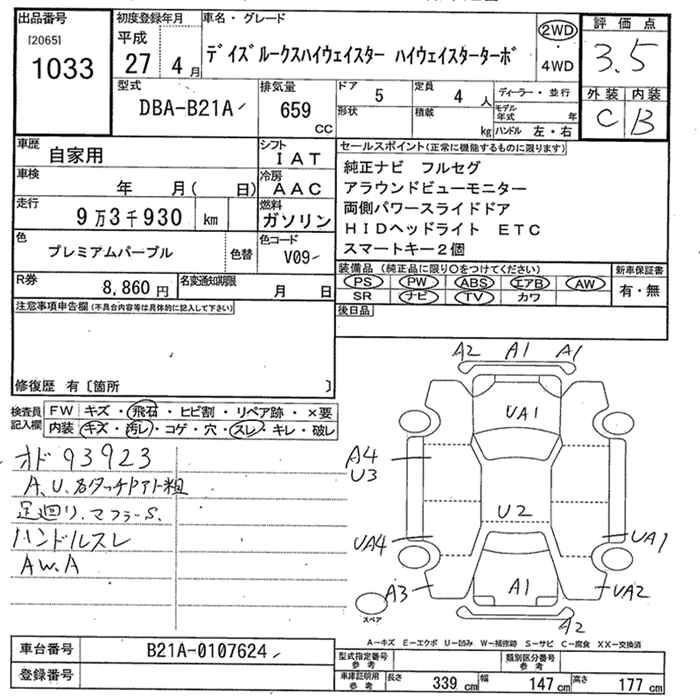 出品番号
[2065]
1033
初度登録年月
平成
27 4月
車名・グレード
デイズルークスハイウェイスター ハイウェイスターターボ
2WD
・
4WD
評価点
3.5
外装 内装
C B
型式
DBA-B21A
排気量
659
CC
ドア
5
定員
4人
形状
積載
kg
ディーラー・並行
モデル年式 年
ハンドル 左・右
車歴
自家用
シフト
IAT
車検
年 月( 日)
冷房
AAC
走行
9万3千930 km
燃料
ガソリン
色
プレミアムパープル
色替
色コード
V09
R券
8,860円
名変通知期限
月 日
セールスポイント(正常に機能するものに限ります)
純正ナビ フルセグ
アラウンドビューモニター
両側パワースライドドア
HIDヘッドライト ETC
スマートキー2個
装備品(純正品に限り○をつけてください)
PS PW ABS エアB AW
SR ナビ TV カワ
新車保証書
有・無
後日品
注意事項申告欄(不具合内容等は具体的に記入して下さい)
修復歴 有〔箇所 〕
検査員
記入欄
FW キズ・飛石・ヒビ割・リペア跡・×要
内装 キズ・汚レ・コゲ・穴・スレ・キレ・破レ
オド 93923
A.U.各タッチアト粗
足廻リ.マフラーS.
ハンドルスレ
AW.A
A2 A1 A1
UA1
A4
U3
U2
UA4
UA1
A3
A1
UA2
A2
スペア
A-キズ E-エクボ U-凹み W-補修跡 S-サビ C-腐食 XX-交換済
車台番号
B21A-0107624
登録番号
型式指定番号
参考
類別区分番号
参考
車庫証明用
参考
長さ 339 cm 幅 147 cm 高さ 177 cm